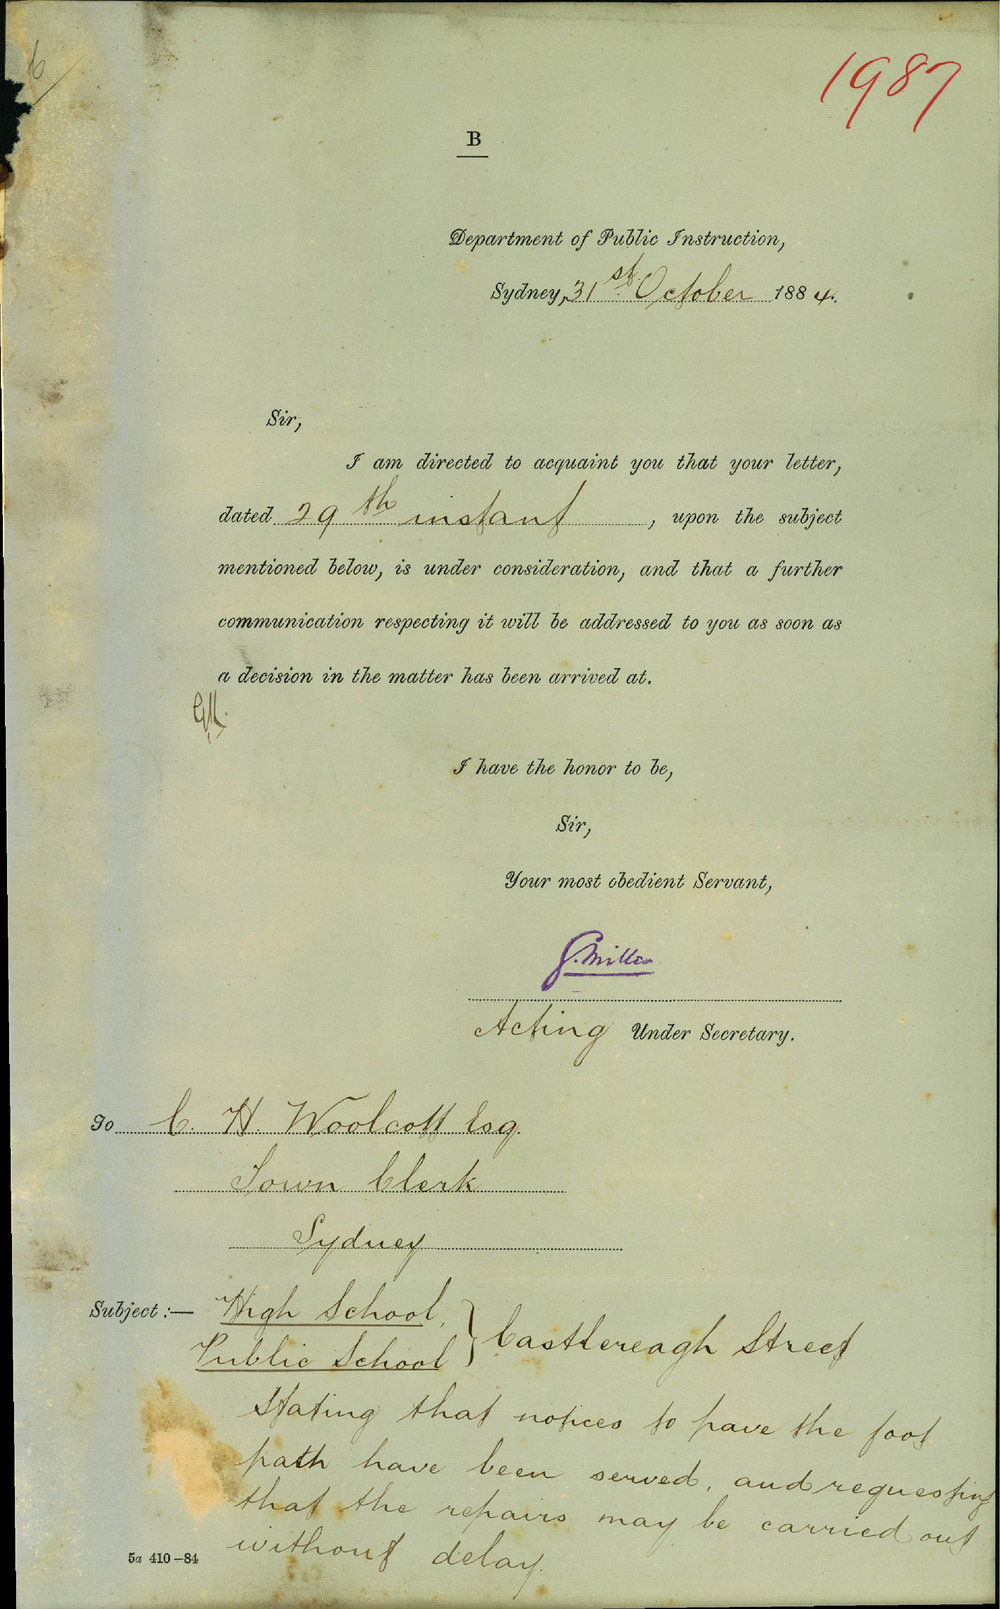 6
1987
B
Department of Public Instruction,
Sydney, 31st October 1884.
Sir,
I am directed to acquaint you that your letter,
dated 29th instant, upon the subject
mentioned below, is under consideration, and that a further
communication respecting it will be addressed to you as soon as
a decision in the matter has been arrived at.
I have the honor to be,
Sir,
Your most obedient Servant,
G. Miller
Acting Under Secretary.
To C. H. Woolcott Esq.
Town Clerk
Sydney
Subject :— High School,
Public School } Castlereagh Street
Stating that notices to pave the foot
path have been served, and requesting
that the repairs may be carried out
without delay.
5a 410–84